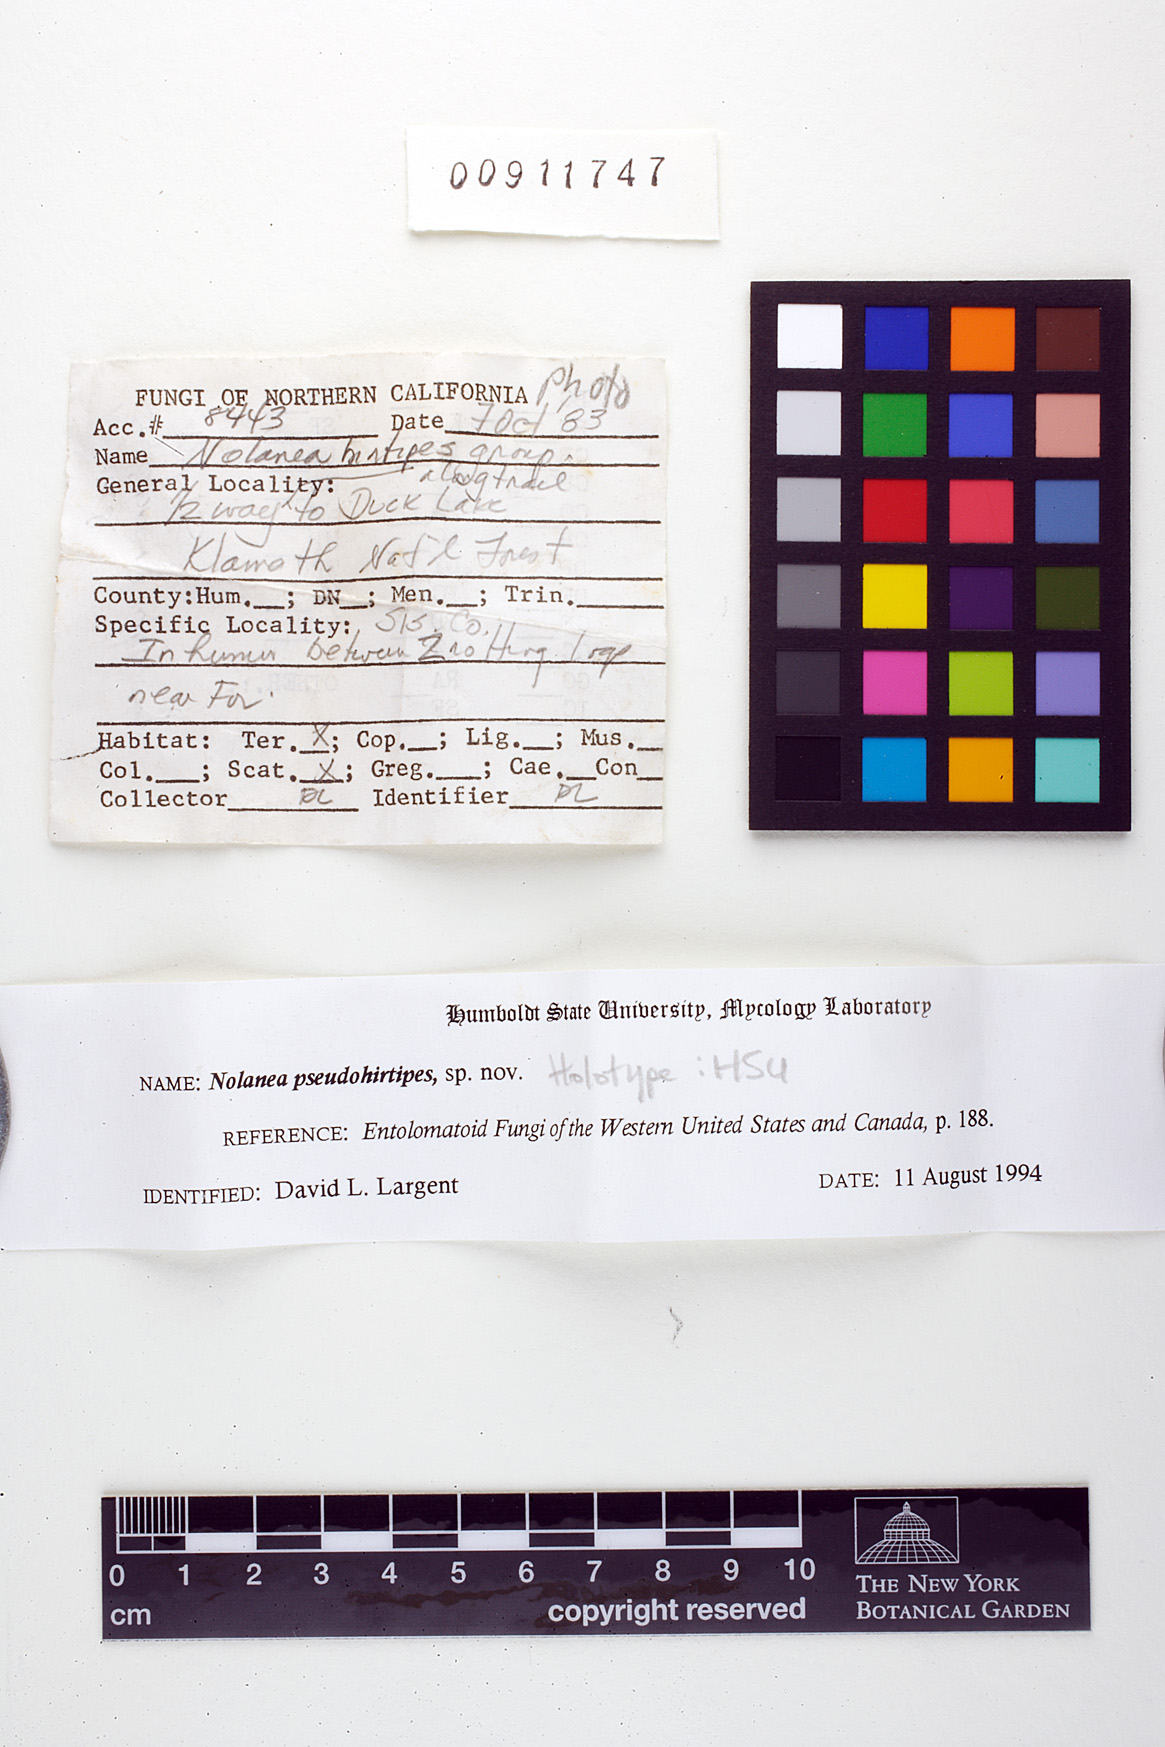 00911747
FUNGI OF NORTHERN CALIFORNIA Photo
Acc.# 8443 Date 7 Oct '83
Name Nolanea hirtipes group.
General Locality: along trail
1/2 way to Duck Lake
Klamath Nat'l Forest
County:Hum.__; DN__; Men.__; Trin.______
Specific Locality: Sis. Co.
In humus between 2 rotting logs
near Fir.
Habitat: Ter. X; Cop.__; Lig.__; Mus.__
Col.___; Scat. X; Greg.___; Cae.__Con__
Collector DL Identifier DL
Humboldt State University, Mycology Laboratory
NAME: Nolanea pseudohirtipes, sp. nov. Holotype : HSU
REFERENCE: Entolomatoid Fungi of the Western United States and Canada, p. 188.
IDENTIFIED: David L. Largent DATE: 11 August 1994
0 1 2 3 4 5 6 7 8 9 10
cm copyright reserved
THE NEW YORK
BOTANICAL GARDEN